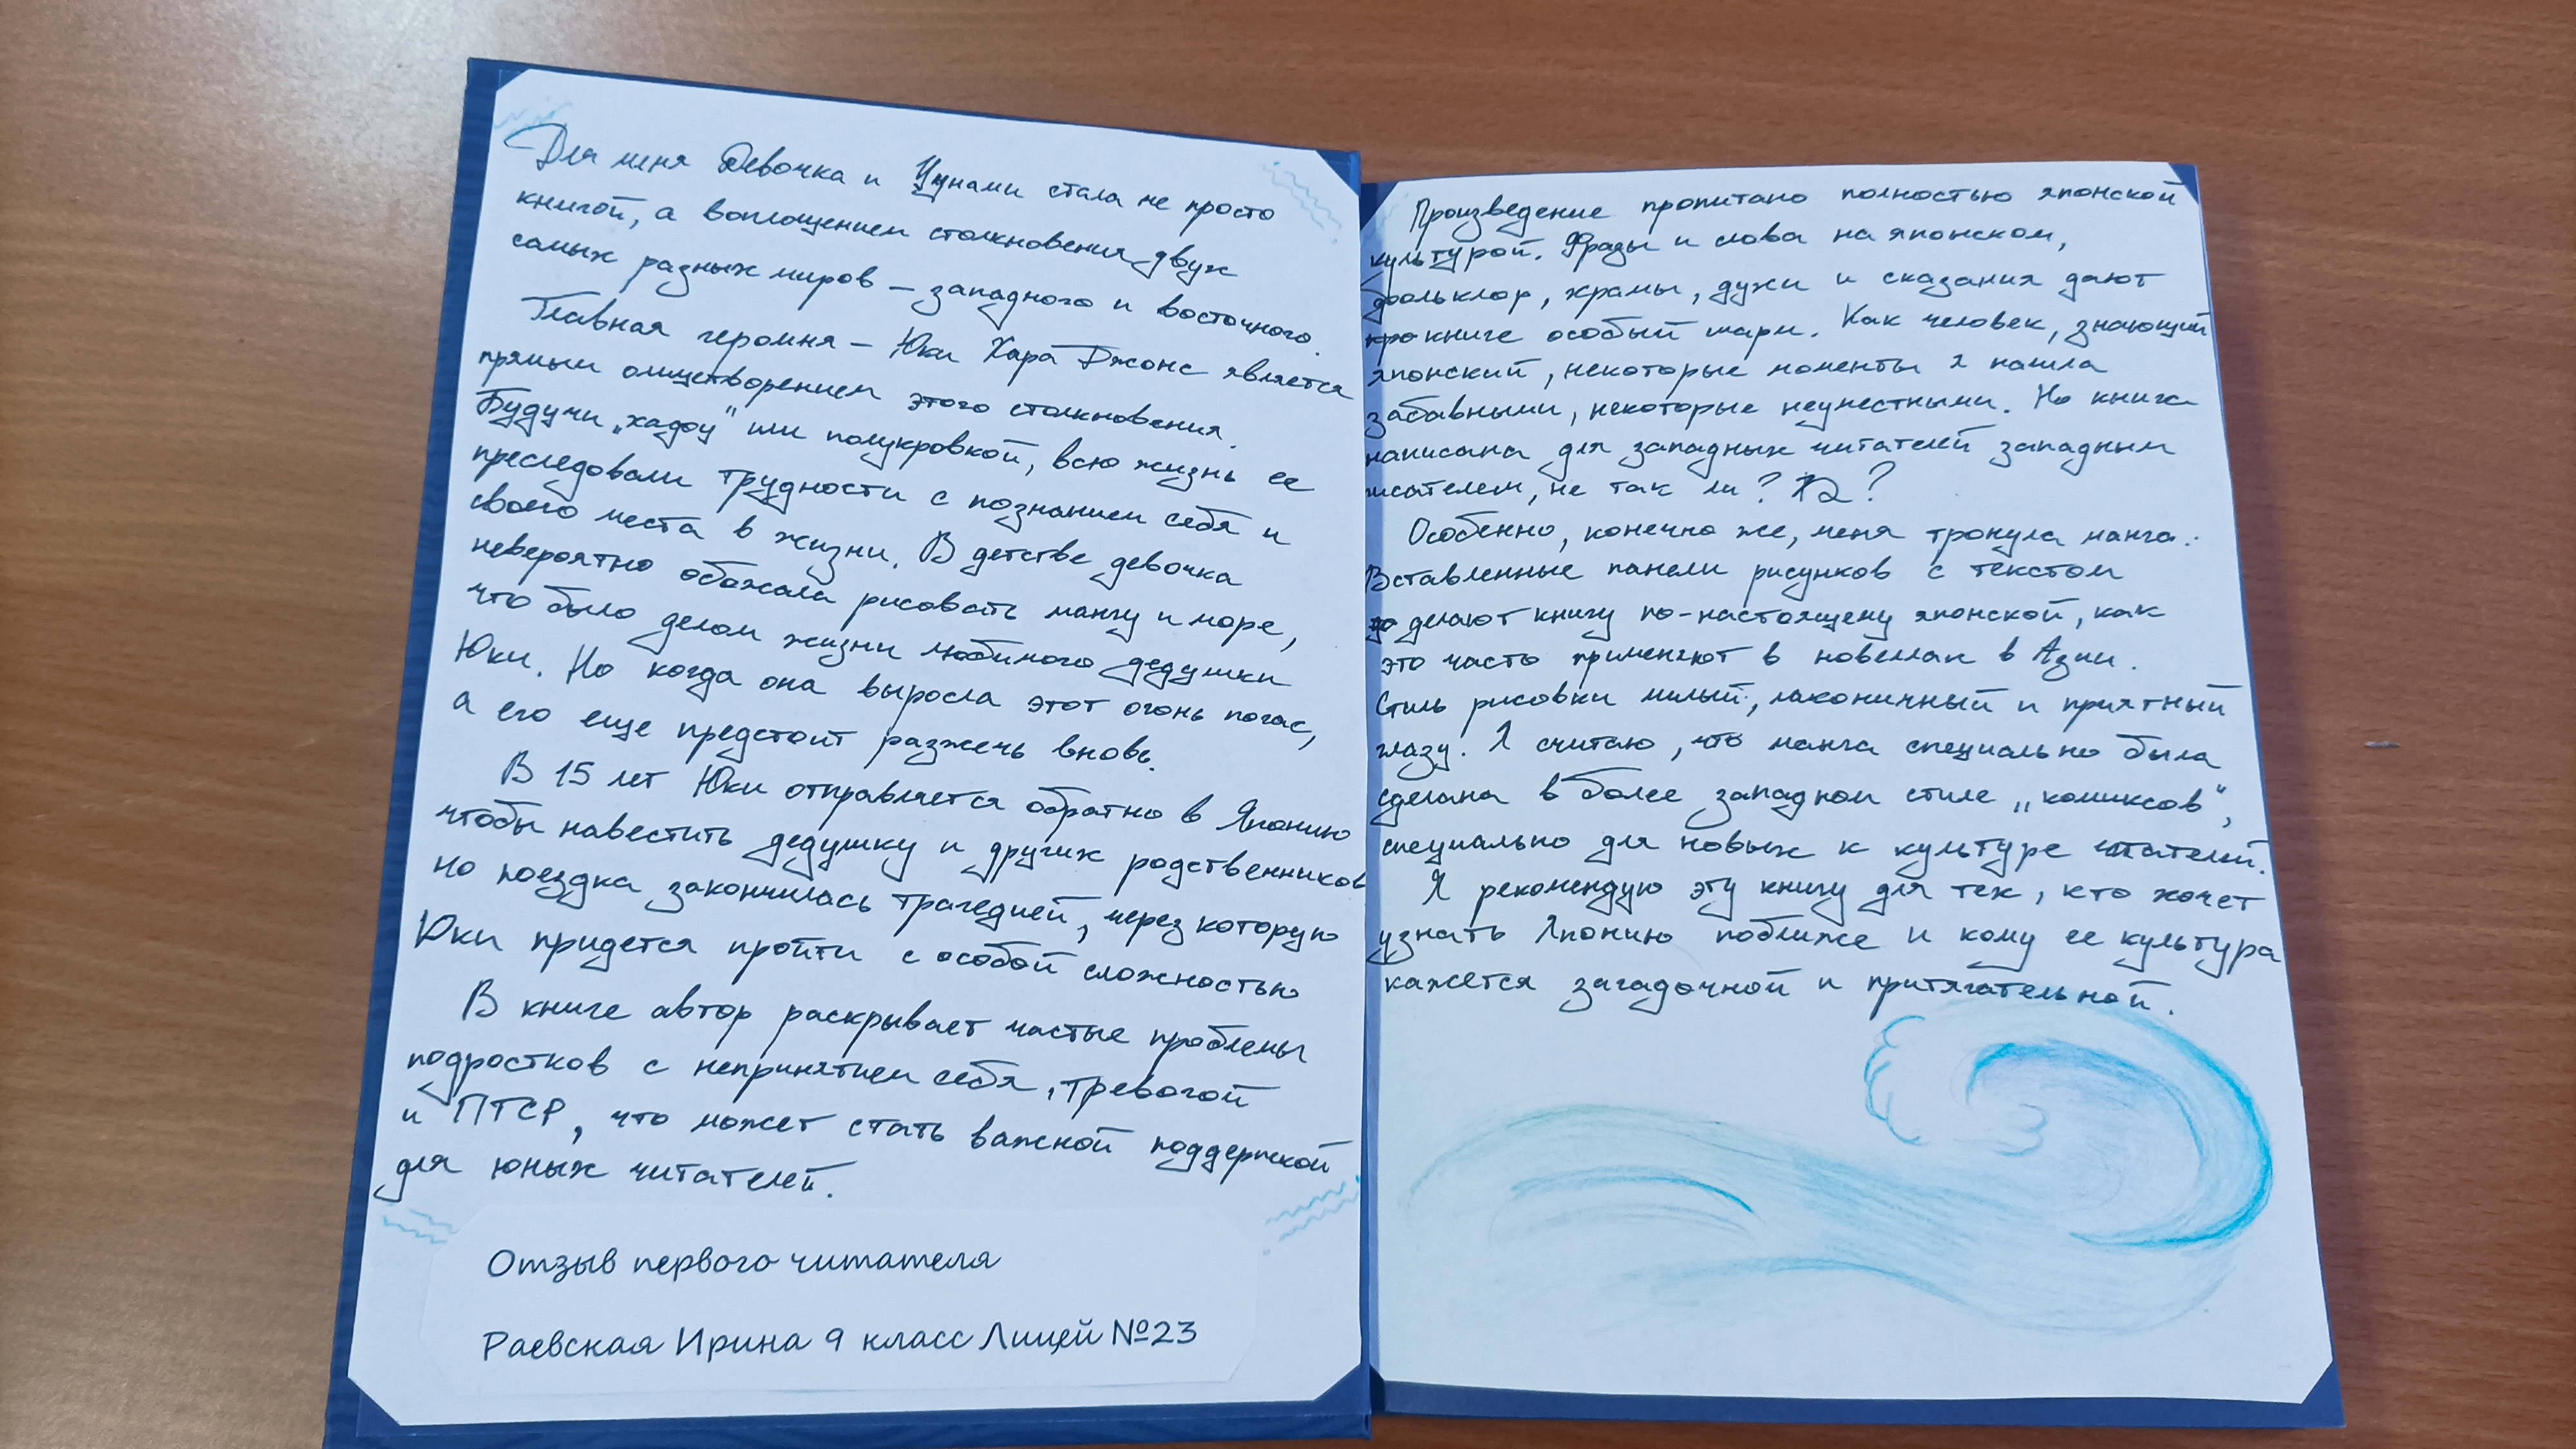 Для меня Девочка и Цунами стала не просто
книгой, а воплощением столкновения двух
самых разных миров – западного и восточного.
Главная героиня – Юки Хара Джонс является
прямым олицетворением этого столкновения.
Будучи „хафу" или полукровкой, всю жизнь ее
преследовали трудности с познанием себя и
своего места в жизни. В детстве девочка
невероятно обожала рисовать мангу и море,
что было делом жизни любимого дедушки
Юки. Но когда она выросла этот огонь погас,
а его еще предстоит разжечь вновь.
В 15 лет Юки отправляется обратно в Японию
чтобы навестить дедушку и других родственников
но поездка закончилась трагедией, через которую
Юки придется пройти с особой сложностью
В книге автор раскрывает частые проблемы
подростков с непринятием себя, тревогой
и ПТСР, что может стать важной поддержкой
для юных читателей.
Отзыв первого читателя
Раевская Ирина 9 класс Лицей №23
Произведение пропитано полностью японской
культурой. Фразы и слова на японском,
фольклор, храмы, духи и сказания дают
книге особый шарм. Как человек, знающий
японский, некоторые моменты я нашла
забавными, некоторые неуместными. Но книга
написана для западных читателей западным
писателем, не так ли?
Особенно, конечно же, меня тронула манга.
Вставленные панели рисунков с текстом
делают книгу по-настоящему японской, как
это часто применяют в новеллах в Азии.
Стиль рисовки милый, лаконичный и приятный
глазу. Я считаю, что манга специально была
сделана в более западном стиле „комиксов",
специально для новых к культуре читателей.
Я рекомендую эту книгу для тех, кто хочет
узнать Японию поближе и кому ее культура
кажется загадочной и притягательной.